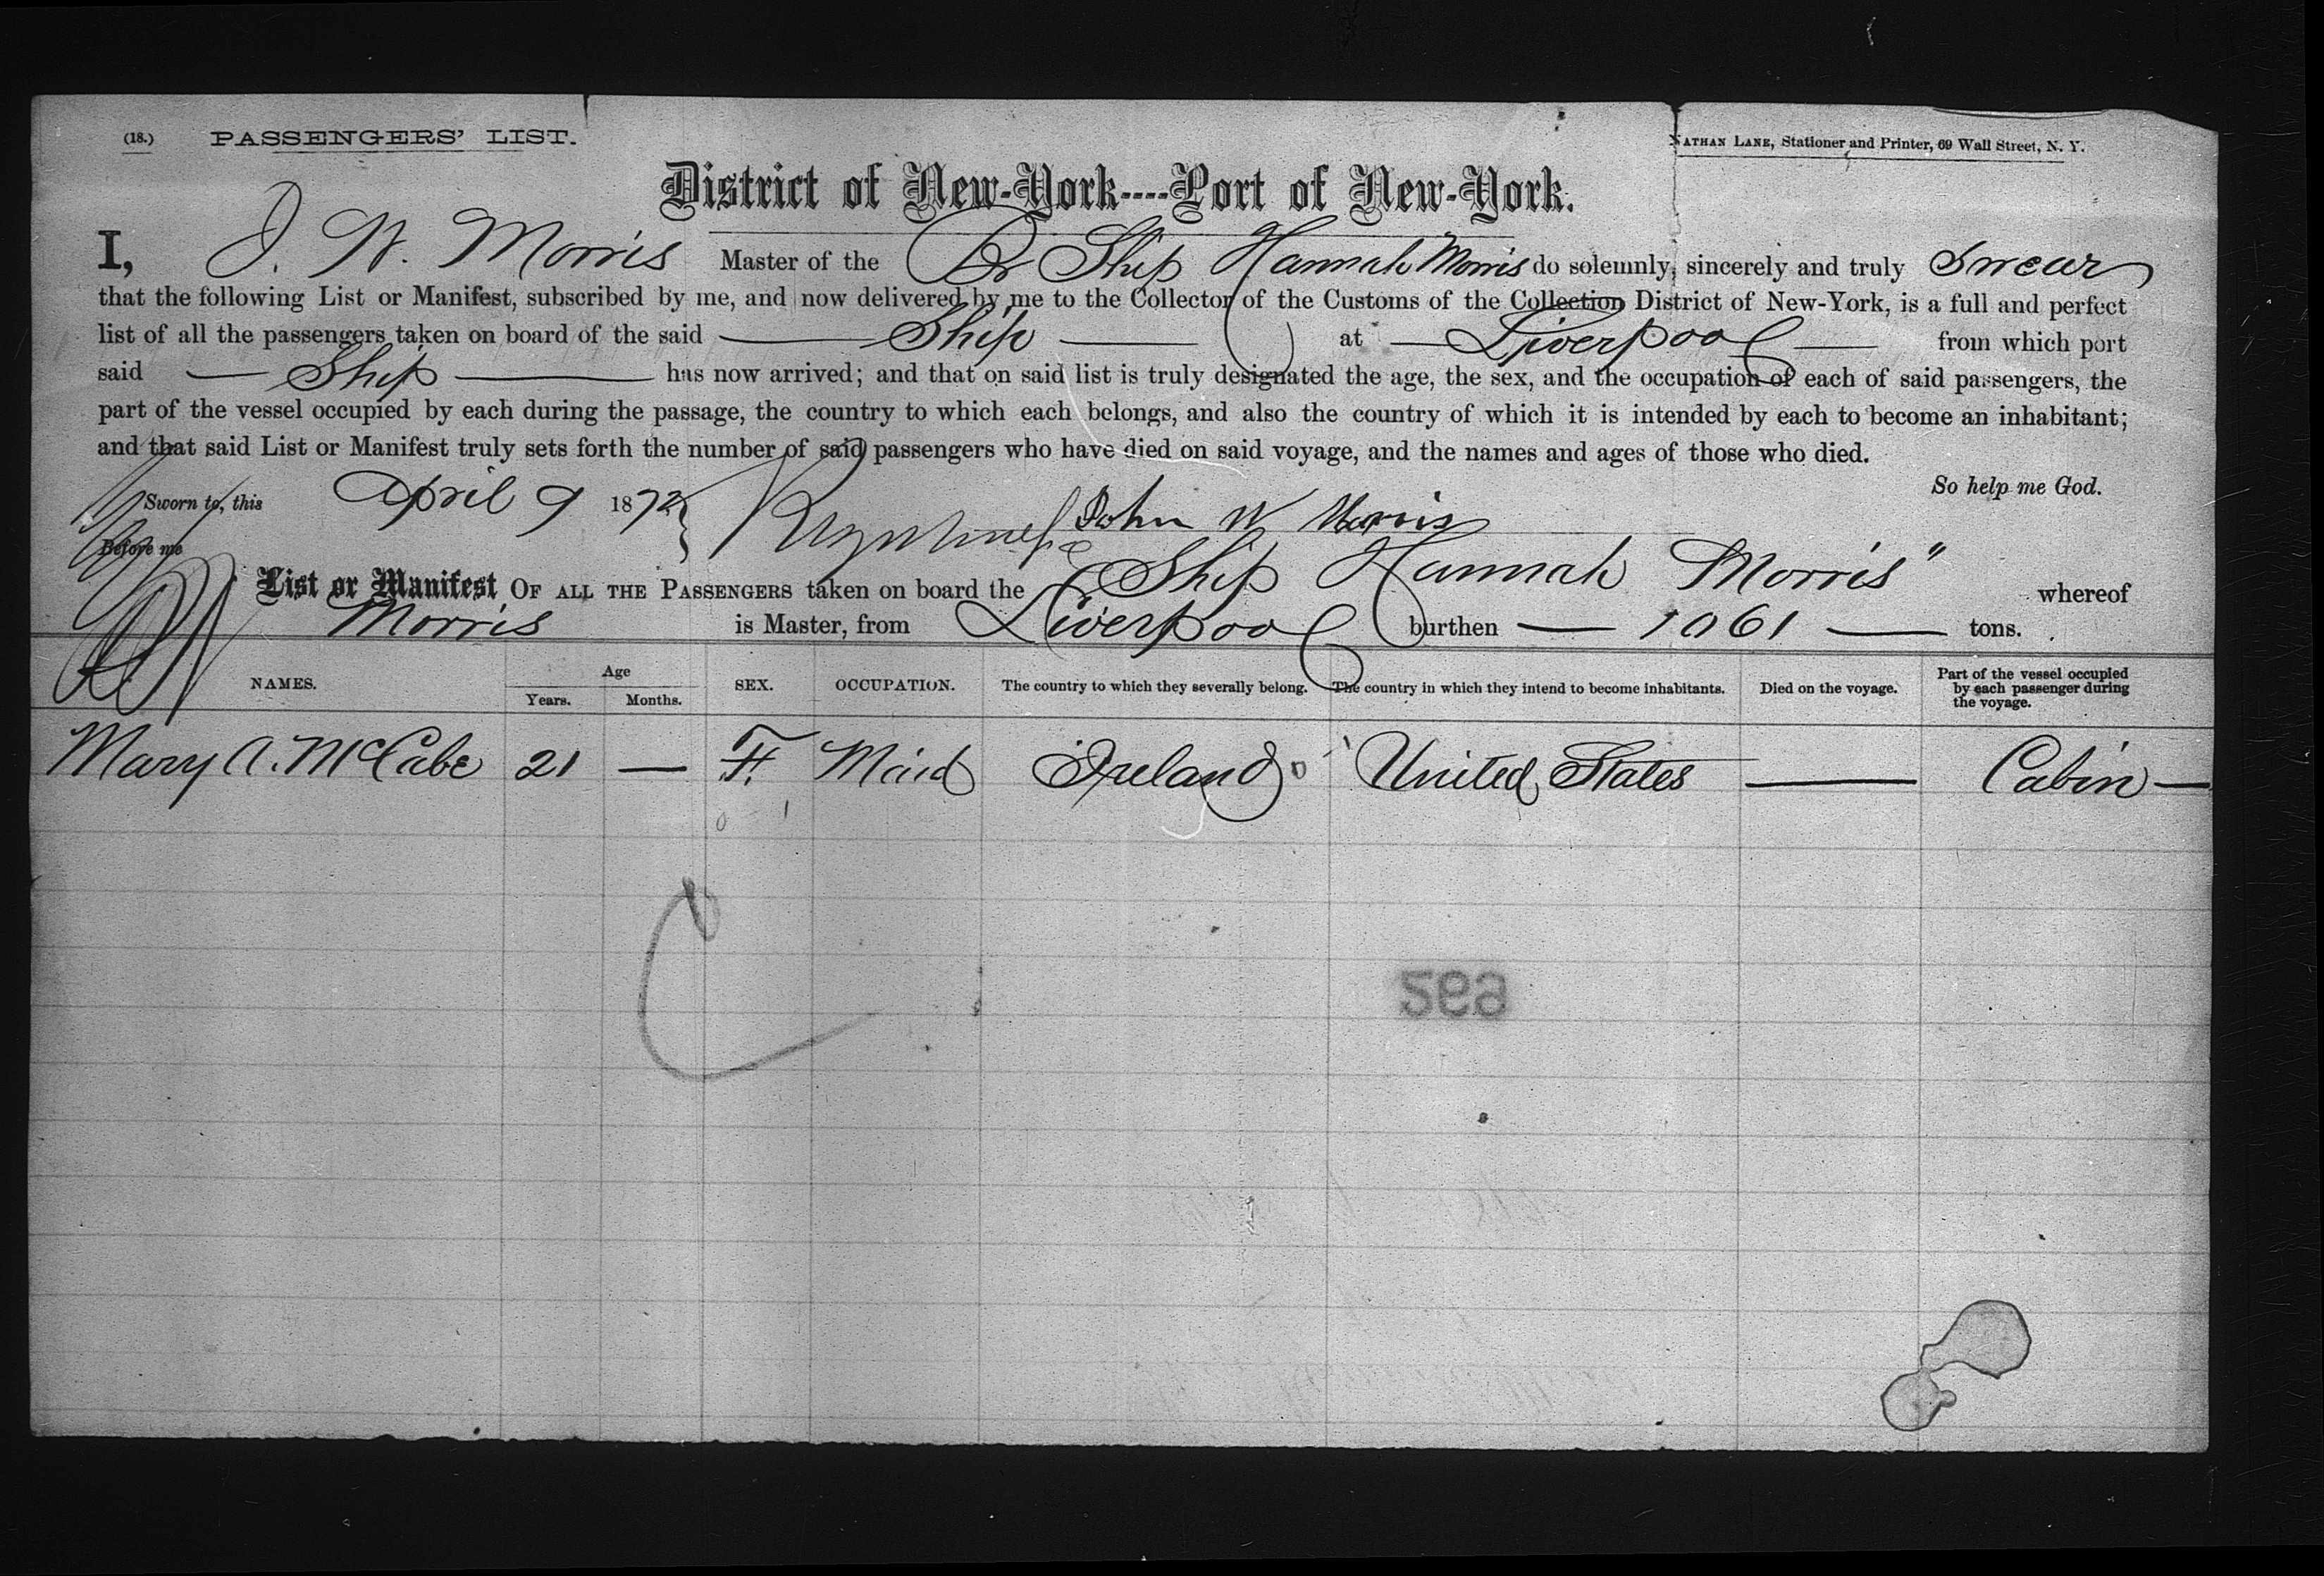 (18.) PASSENGERS' LIST.
NATHAN LANE, Stationer and Printer, 69 Wall Street, N. Y.
District of New-York----Port of New-York.
I, J. W. Morris Master of the Br Ship Hannah Morris do solemnly, sincerely and truly Swear
that the following List or Manifest, subscribed by me, and now delivered by me to the Collector of the Customs of the Collection District of New-York, is a full and perfect
list of all the passengers taken on board of the said Ship at Liverpool from which port
said Ship has now arrived; and that on said list is truly designated the age, the sex, and the occupation of each of said passengers, the
part of the vessel occupied by each during the passage, the country to which each belongs, and also the country of which it is intended by each to become an inhabitant;
and that said List or Manifest truly sets forth the number of said passengers who have died on said voyage, and the names and ages of those who died.
So help me God.
Sworn to, this April 9 1872 John W Morris
Before me
List or Manifest OF ALL THE PASSENGERS taken on board the Ship Hannah Morris" whereof
Morris is Master, from Liverpool burthen 1061 tons.
NAMES. Age Years. Months. SEX. OCCUPATION. The country to which they severally belong. The country in which they intend to become inhabitants. Died on the voyage. Part of the vessel occupied by each passenger during the voyage.
Mary A. McCabe 21 — F. Maid Ireland United States — Cabin —